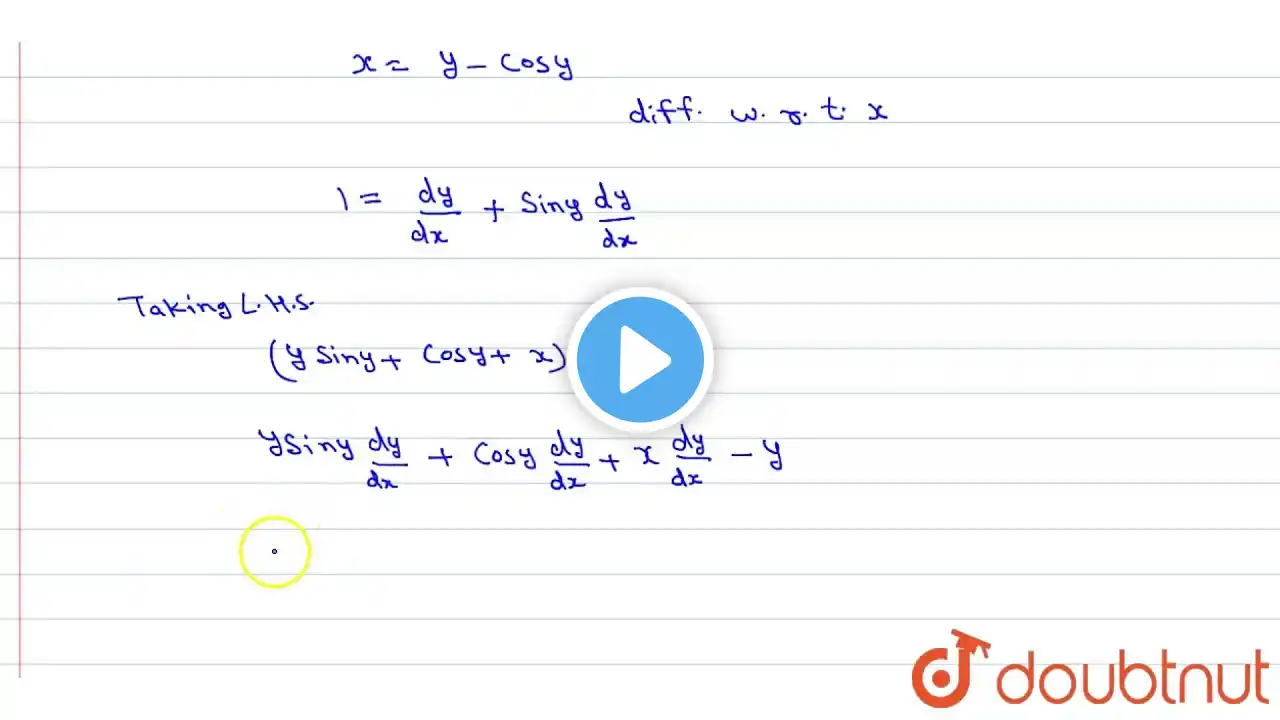 x = y - Cosy
diff. w. r. t. x
1 = dy/dx + Siny dy/dx
Taking L.H.S.
(y Siny + Cosy + x)
ySiny dy/dx + Cosy dy/dx + x dy/dx - y
doubtnut